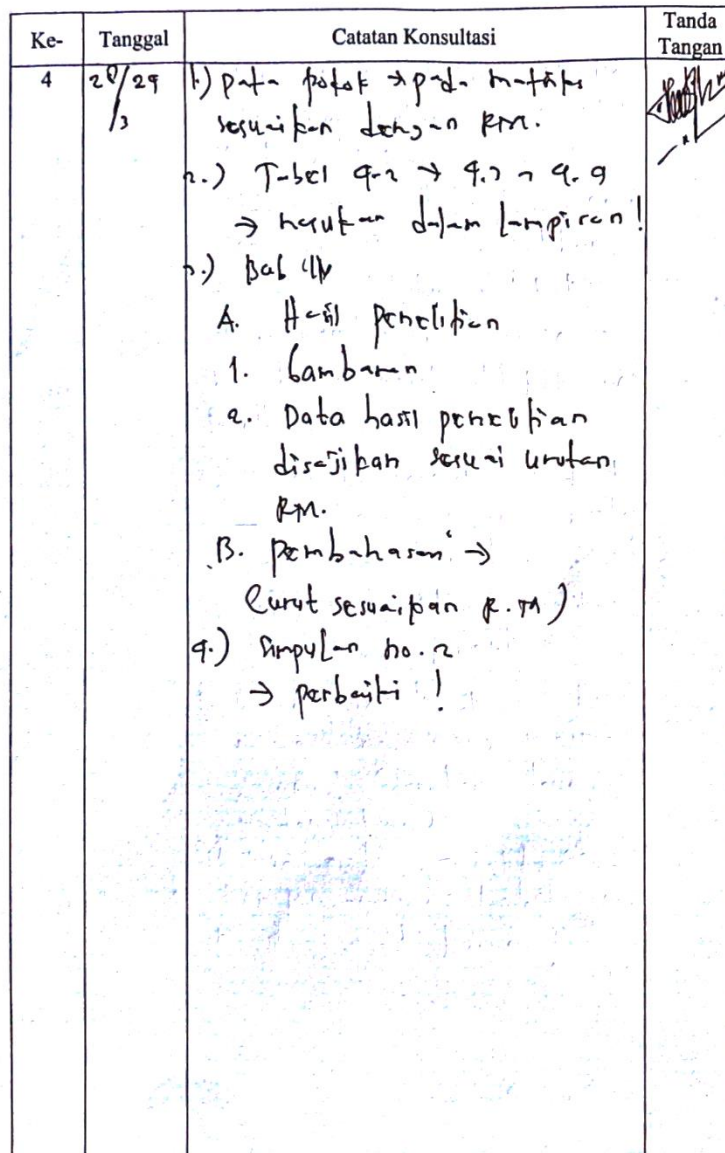 Ke- Tanggal Catatan Konsultasi Tanda Tangan
4 1.) Data pokok → pada matriks
sesuaikan dengan RM.
2.) Tabel 4.2 → 4.3
→ masukan dalam lampiran!
3.) Bab IV
A. Hasil penelitian
1. Gambaran
2. Data hasil penelitian
disajikan sesuai urutan
RM.
B. Pembahasan →
(urut sesuaikan R.M)
4.) Simpulan no. 2
→ perbaiki !